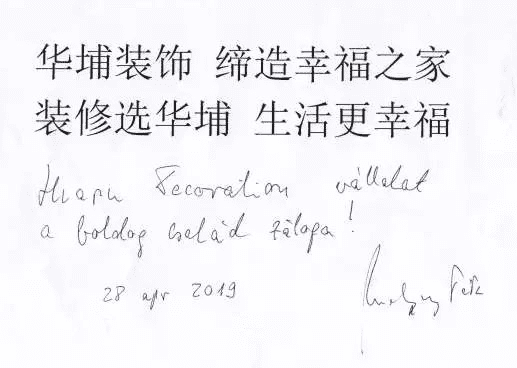 华埔装饰 缔造幸福之家
装修选华埔 生活更幸福
Huapu Decoration vállalat
a boldog család záloga!
28 apr 2019